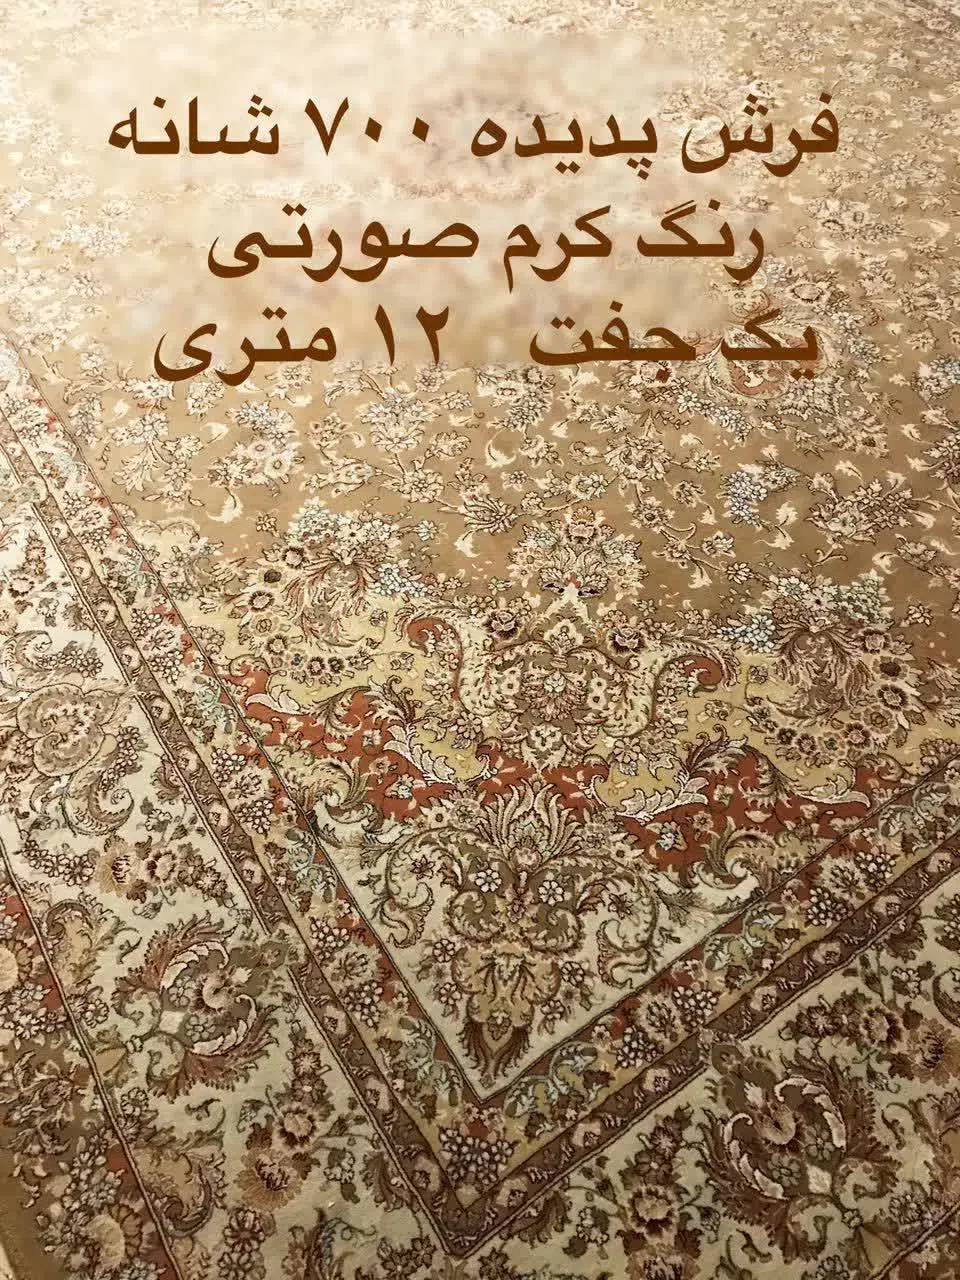 فرش پدیده ۷۰۰ شانه
رنگ کرم صورتی
یک جفت ۱۲ متری